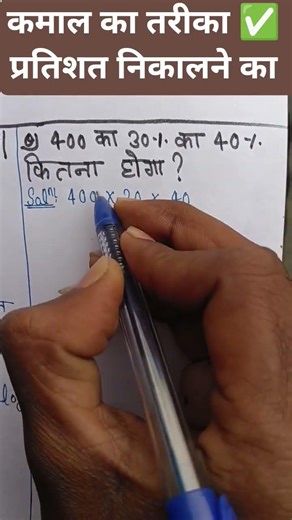 कमाल का तरीका ✅
प्रतिशत निकालने का
Q) 400 का 30% का 40%
कितना होगा ?
Solⁿ: 400 × 30 × 40